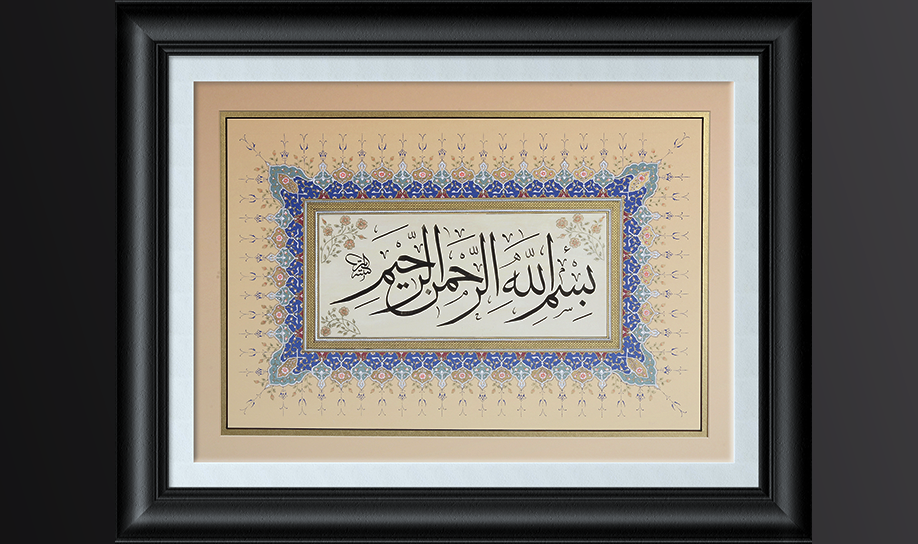 بِسْمِ اللَّهِ الرَّحْمنِ الرَّحِيْمِ